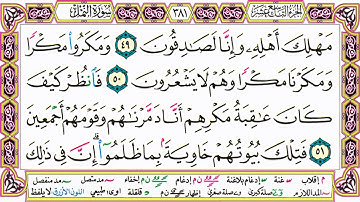 الجزء التاسع عشر ٣٨١ سورة النمل
مَهْلِكَ أَهْلِهِۦ وَإِنَّا لَصَٰدِقُونَ ٤٩ وَمَكَرُوا۟ مَكْرًا
وَمَكَرْنَا مَكْرًا وَهُمْ لَا يَشْعُرُونَ ٥٠ فَٱنظُرْ كَيْفَ
كَانَ عَٰقِبَةُ مَكْرِهِمْ أَنَّا دَمَّرْنَٰهُمْ وَقَوْمَهُمْ أَجْمَعِينَ
٥١ فَتِلْكَ بُيُوتُهُمْ خَاوِيَةًۢ بِمَا ظَلَمُوٓا۟ۗ إِنَّ فِى ذَٰلِكَ